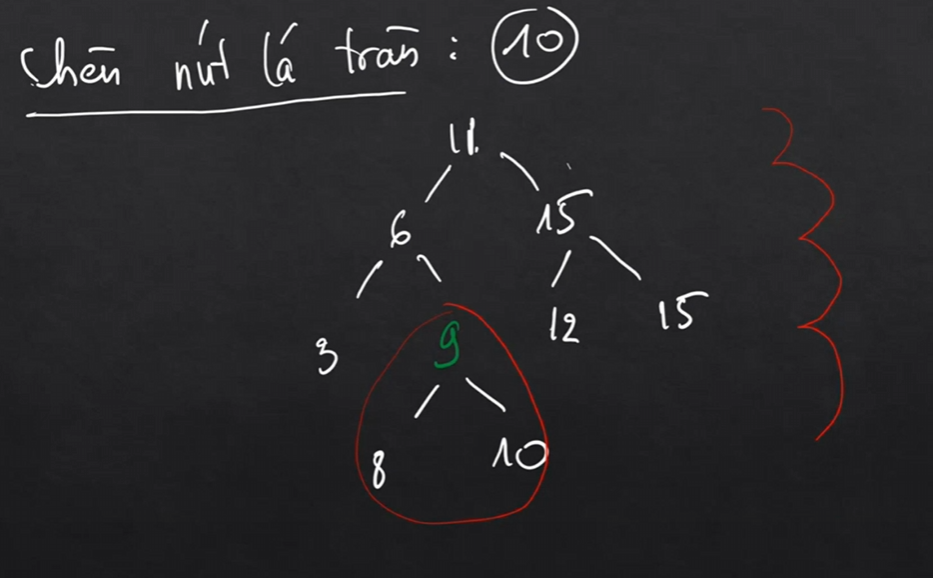 chèn nút lá tràn : 10
11
6 15
3 9 12 15
8 10